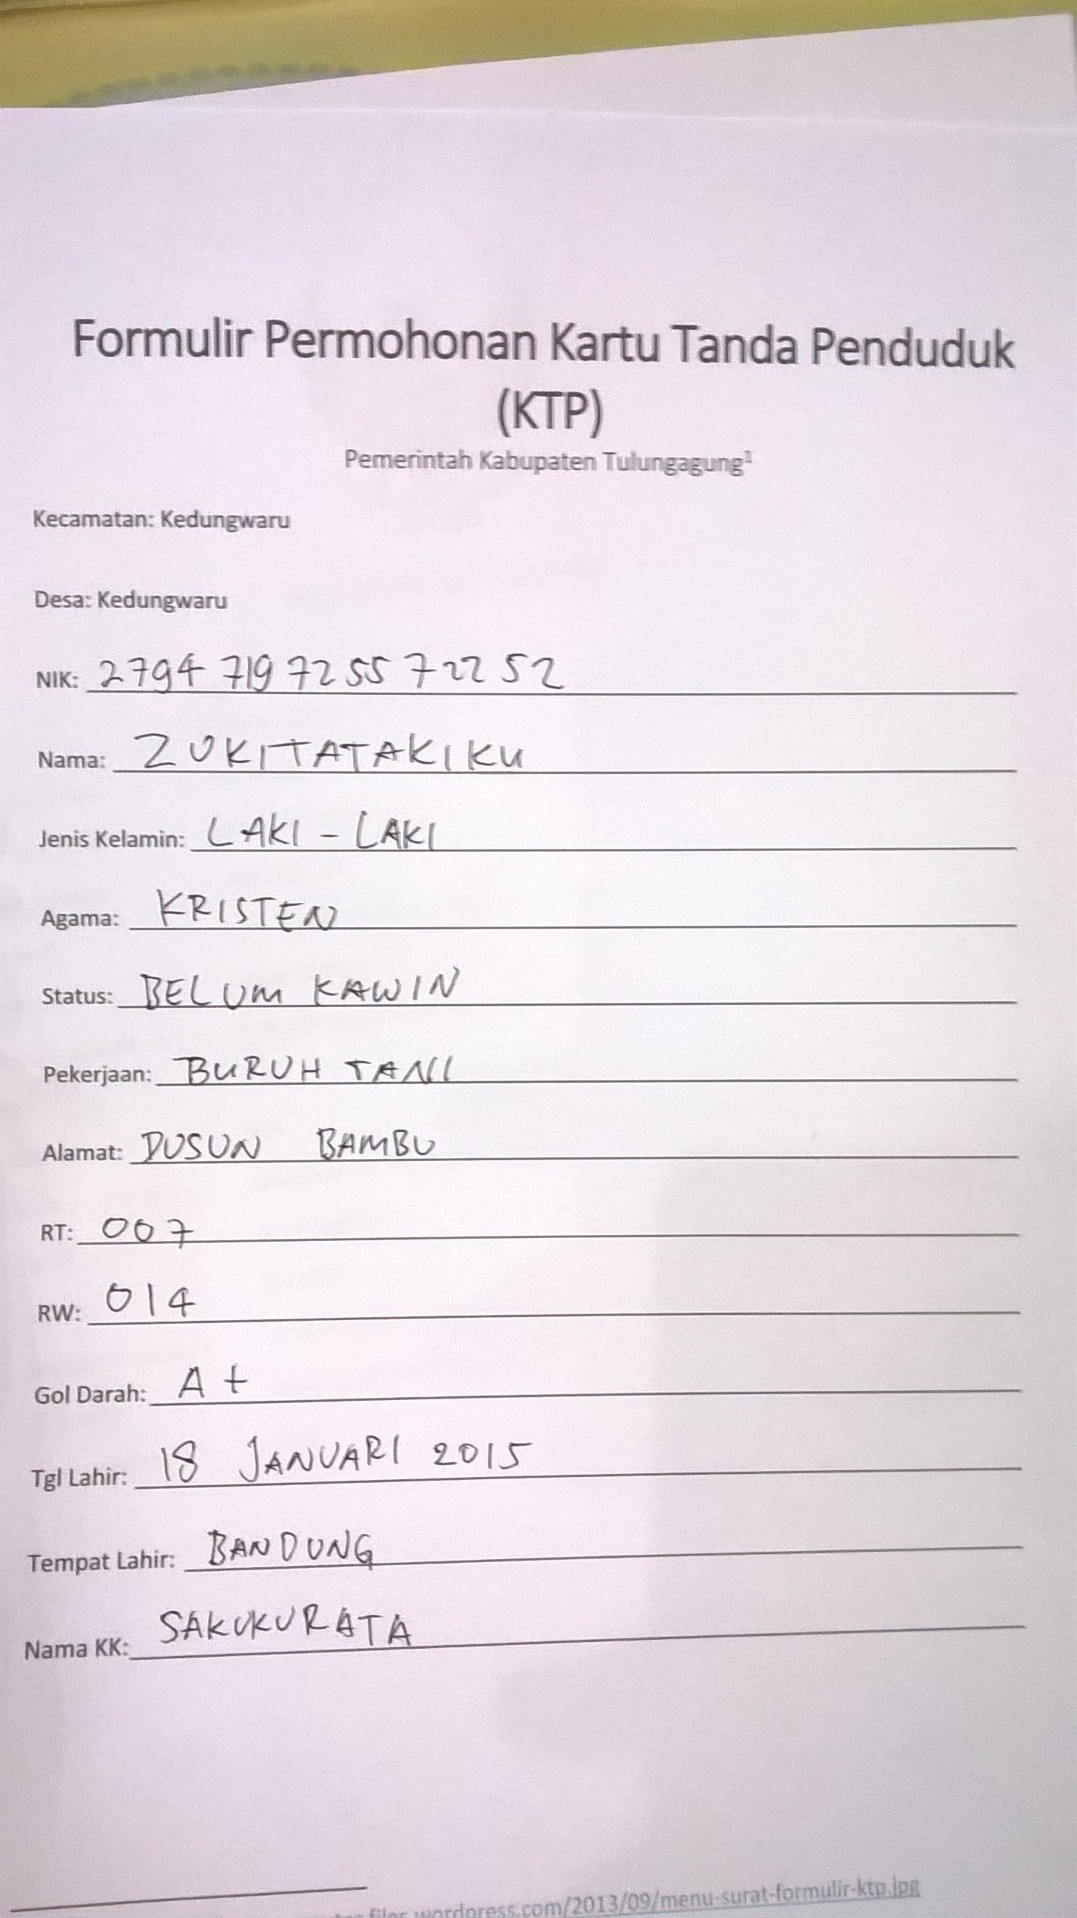 Formulir Permohonan Kartu Tanda Penduduk
(KTP)
Pemerintah Kabupaten Tulungagung¹
Kecamatan: Kedungwaru
Desa: Kedungwaru
NIK: 2794 719 7255 72252
Nama: ZUKITATAKIKU
Jenis Kelamin: LAKI - LAKI
Agama: KRISTEN
Status: BELUM KAWIN
Pekerjaan: BURUH TANI
Alamat: DUSUN BAMBU
RT: 007
RW: 014
Gol Darah: A +
Tgl Lahir: 18 JANUARI 2015
Tempat Lahir: BANDUNG
Nama KK: SAKUKURATA
wordpress.com/2013/09/menu-surat-formulir-ktp.jpg